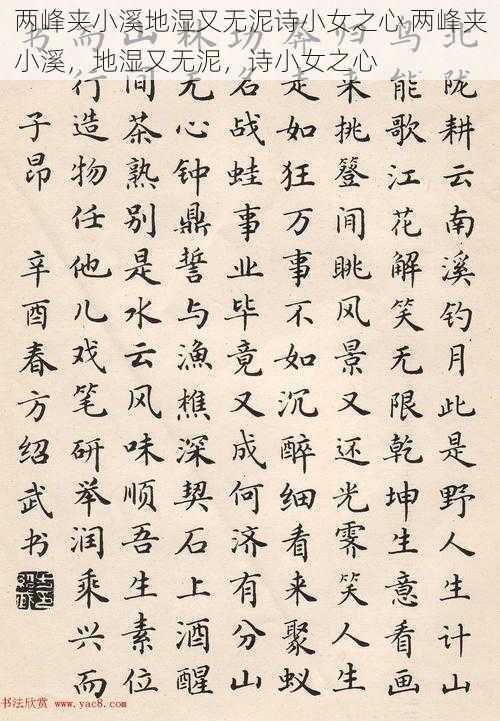 两峰夹小溪地湿又无泥诗小女之心,两峰夹
小溪，地湿又无泥，诗小女之心
北陇耕云南溪钓月此是野人生计山
鸟能歌江花解笑无限乾坤生意看画
归来挑簦间眺风景又还光霁笑人生
奔走如狂万事不如沉醉细看来聚蚁
功名战蛙事业毕竟又成何济有分山
林无心钟鼎誓与渔樵深契石上酒醒
山间茶熟别是水云风味顺吾生素位
而行造物任他儿戏笔研举润乘兴而
书 子昂 辛酉春方绍武书
书法欣赏 www.yac8.com